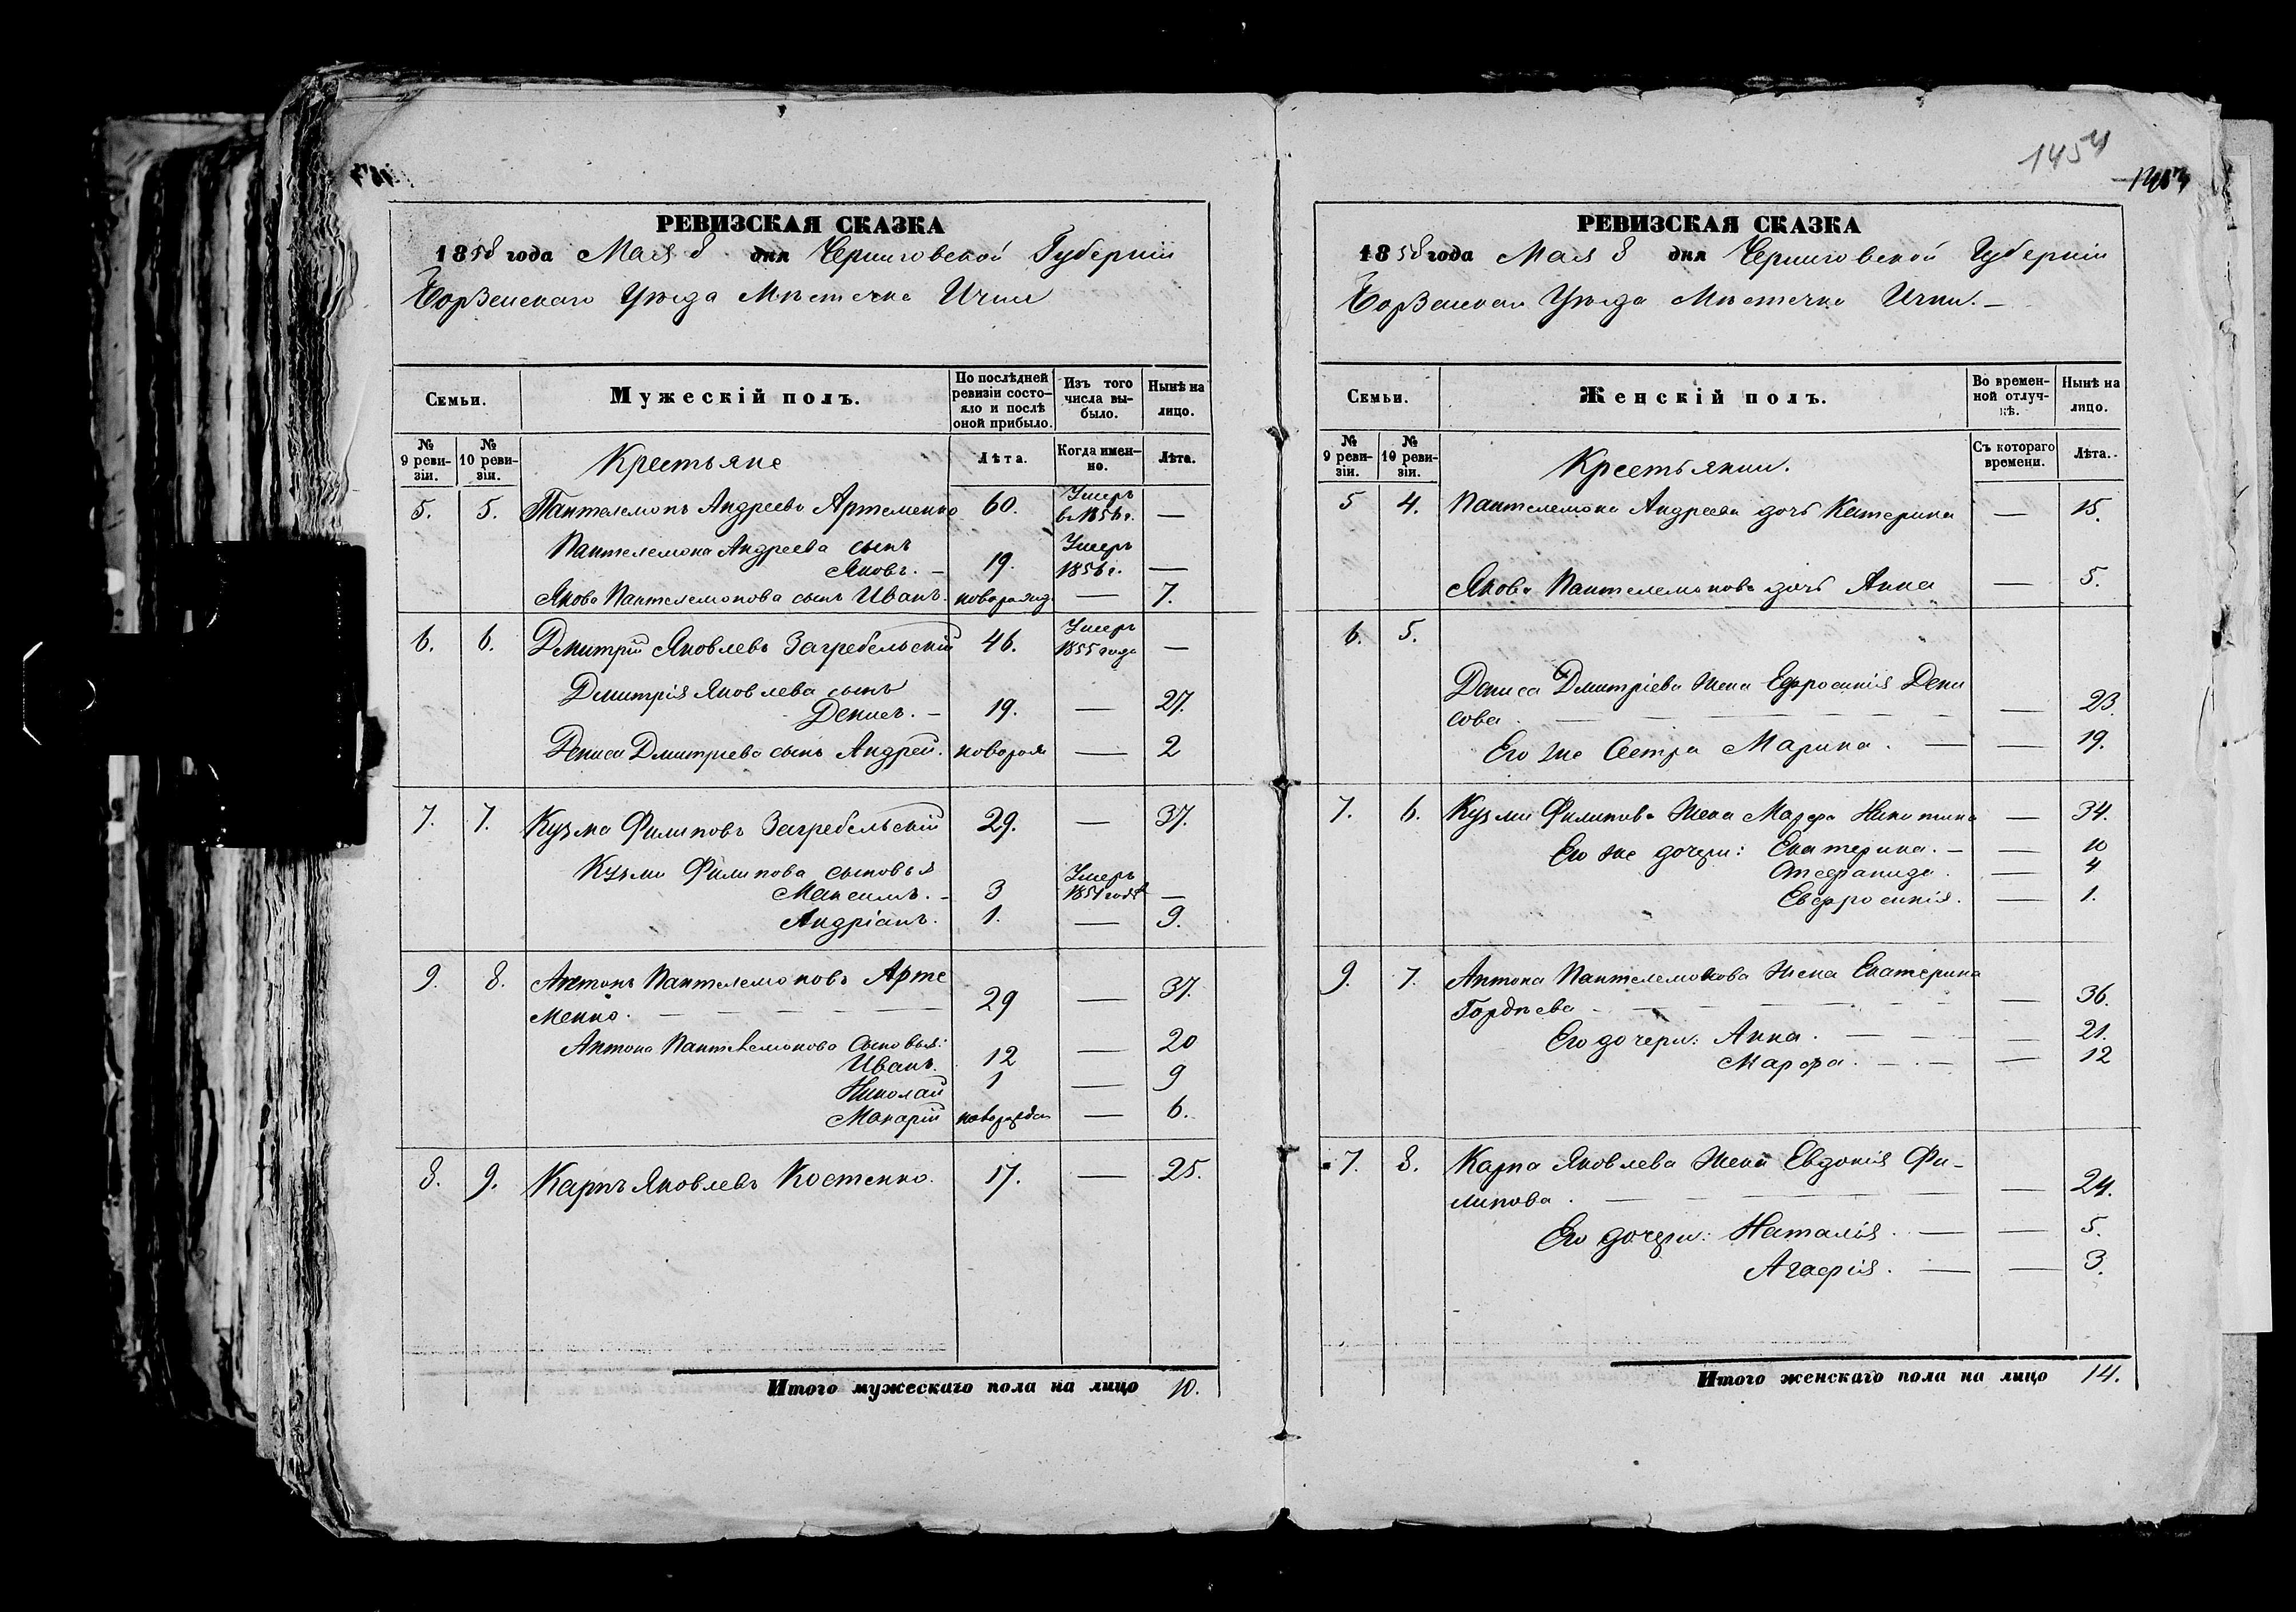 РЕВИЗСКАЯ СКАЗКА
1858 года Мая 8 дня Черниговской Губерніи
Борзенскаго Уѣзда Мѣстечка Ични
Семьи.
Мужескій полъ.
По послѣдней ревизіи состо-
яло и послѣ
оной прибыло.
Изъ того
числа вы-
было.
Нынѣ на
лицо.
№
9 реви-
зіи.
№
10 реви-
зіи.
Крестьяне
Лѣта.
Когда имен-
но.
Лѣта.
5. 5. Пантелемонъ Андреевъ Артеменко 60. Умеръ в 1856 г. —
Пантелемона Андреева сынъ
Яковъ. — 19. Умеръ 1856 г. —
Якова Пантелемонова сынъ Иванъ. новорожд — 7.
6. 6. Дмитрій Яковлевъ Загребельскій 46. Умеръ 1855 года —
Дмитрія Яковлева сынъ
Денисъ. — 19. — 27.
Дениса Дмитріева сынъ Андрей. новорож — 2
7. 7. Кузма Филиповъ Загребельскій 29. — 37.
Кузьми Филипова сыновья
Максимъ. — 3 Умеръ 1851 года —
Андріанъ. 1. — 9.
9. 8. Антонъ Пантелемоновъ Арте
менко. — — — — — 29 — 37.
Антона Пантелемонова Сыновья:
Иванъ. 12 — 20
Николай 1 — 9
Макарій новорожден — 6.
8. 9. Карпъ Яковлевъ Костенко. 17. — 25.
Итого мужескаго пола на лицо 10.
1454
РЕВИЗСКАЯ СКАЗКА
1858 года Мая 8 дня Черниговской Губерніи
Борзенскаго Уѣзда Мѣстечка Ични. —
Семьи.
Женскій полъ.
Во времен-
ной отлуч-
кѣ.
Нынѣ на
лицо.
№
9 реви-
зіи.
№
10 реви-
зіи.
Крестьянки.
Съ котораго
времени.
Лѣта.
5 4. Пантелемона Андреева дочь Катерина — 15.
Якова Пантелемонова дочь Анна — 5.
6. 5.
Дениса Дмитріева жена Ефросинія Дени
сова. — — — — — — — 23.
Его же Сестра Марина. — — 19.
7. 6. Кузьми Филипова жена Марфа Никитина — 34.
Его же дочери: Екатерина. — — 10
Стефанида. — 4
Евфросинія. — 1.
9. 7. Антона Пантелемонова жена Екатерина
Гордѣева — — — — — — — 36.
Его дочери: Анна. — — — 21.
Марфа. — . — — 12
7. 8. Карпа Яковлева жена Евдокія Фи-
липова. — — — — — — 24.
Его дочери: Наталія. — — 5.
Агафія. — — 3.
Итого женскаго пола на лицо 14.